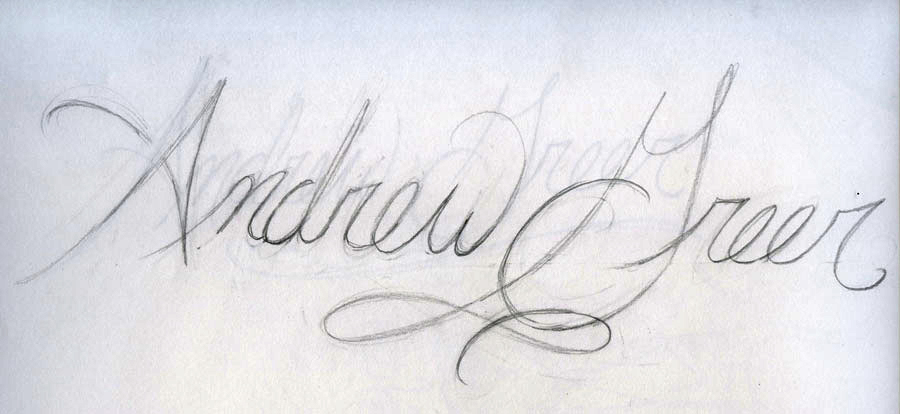 Andrew Greer